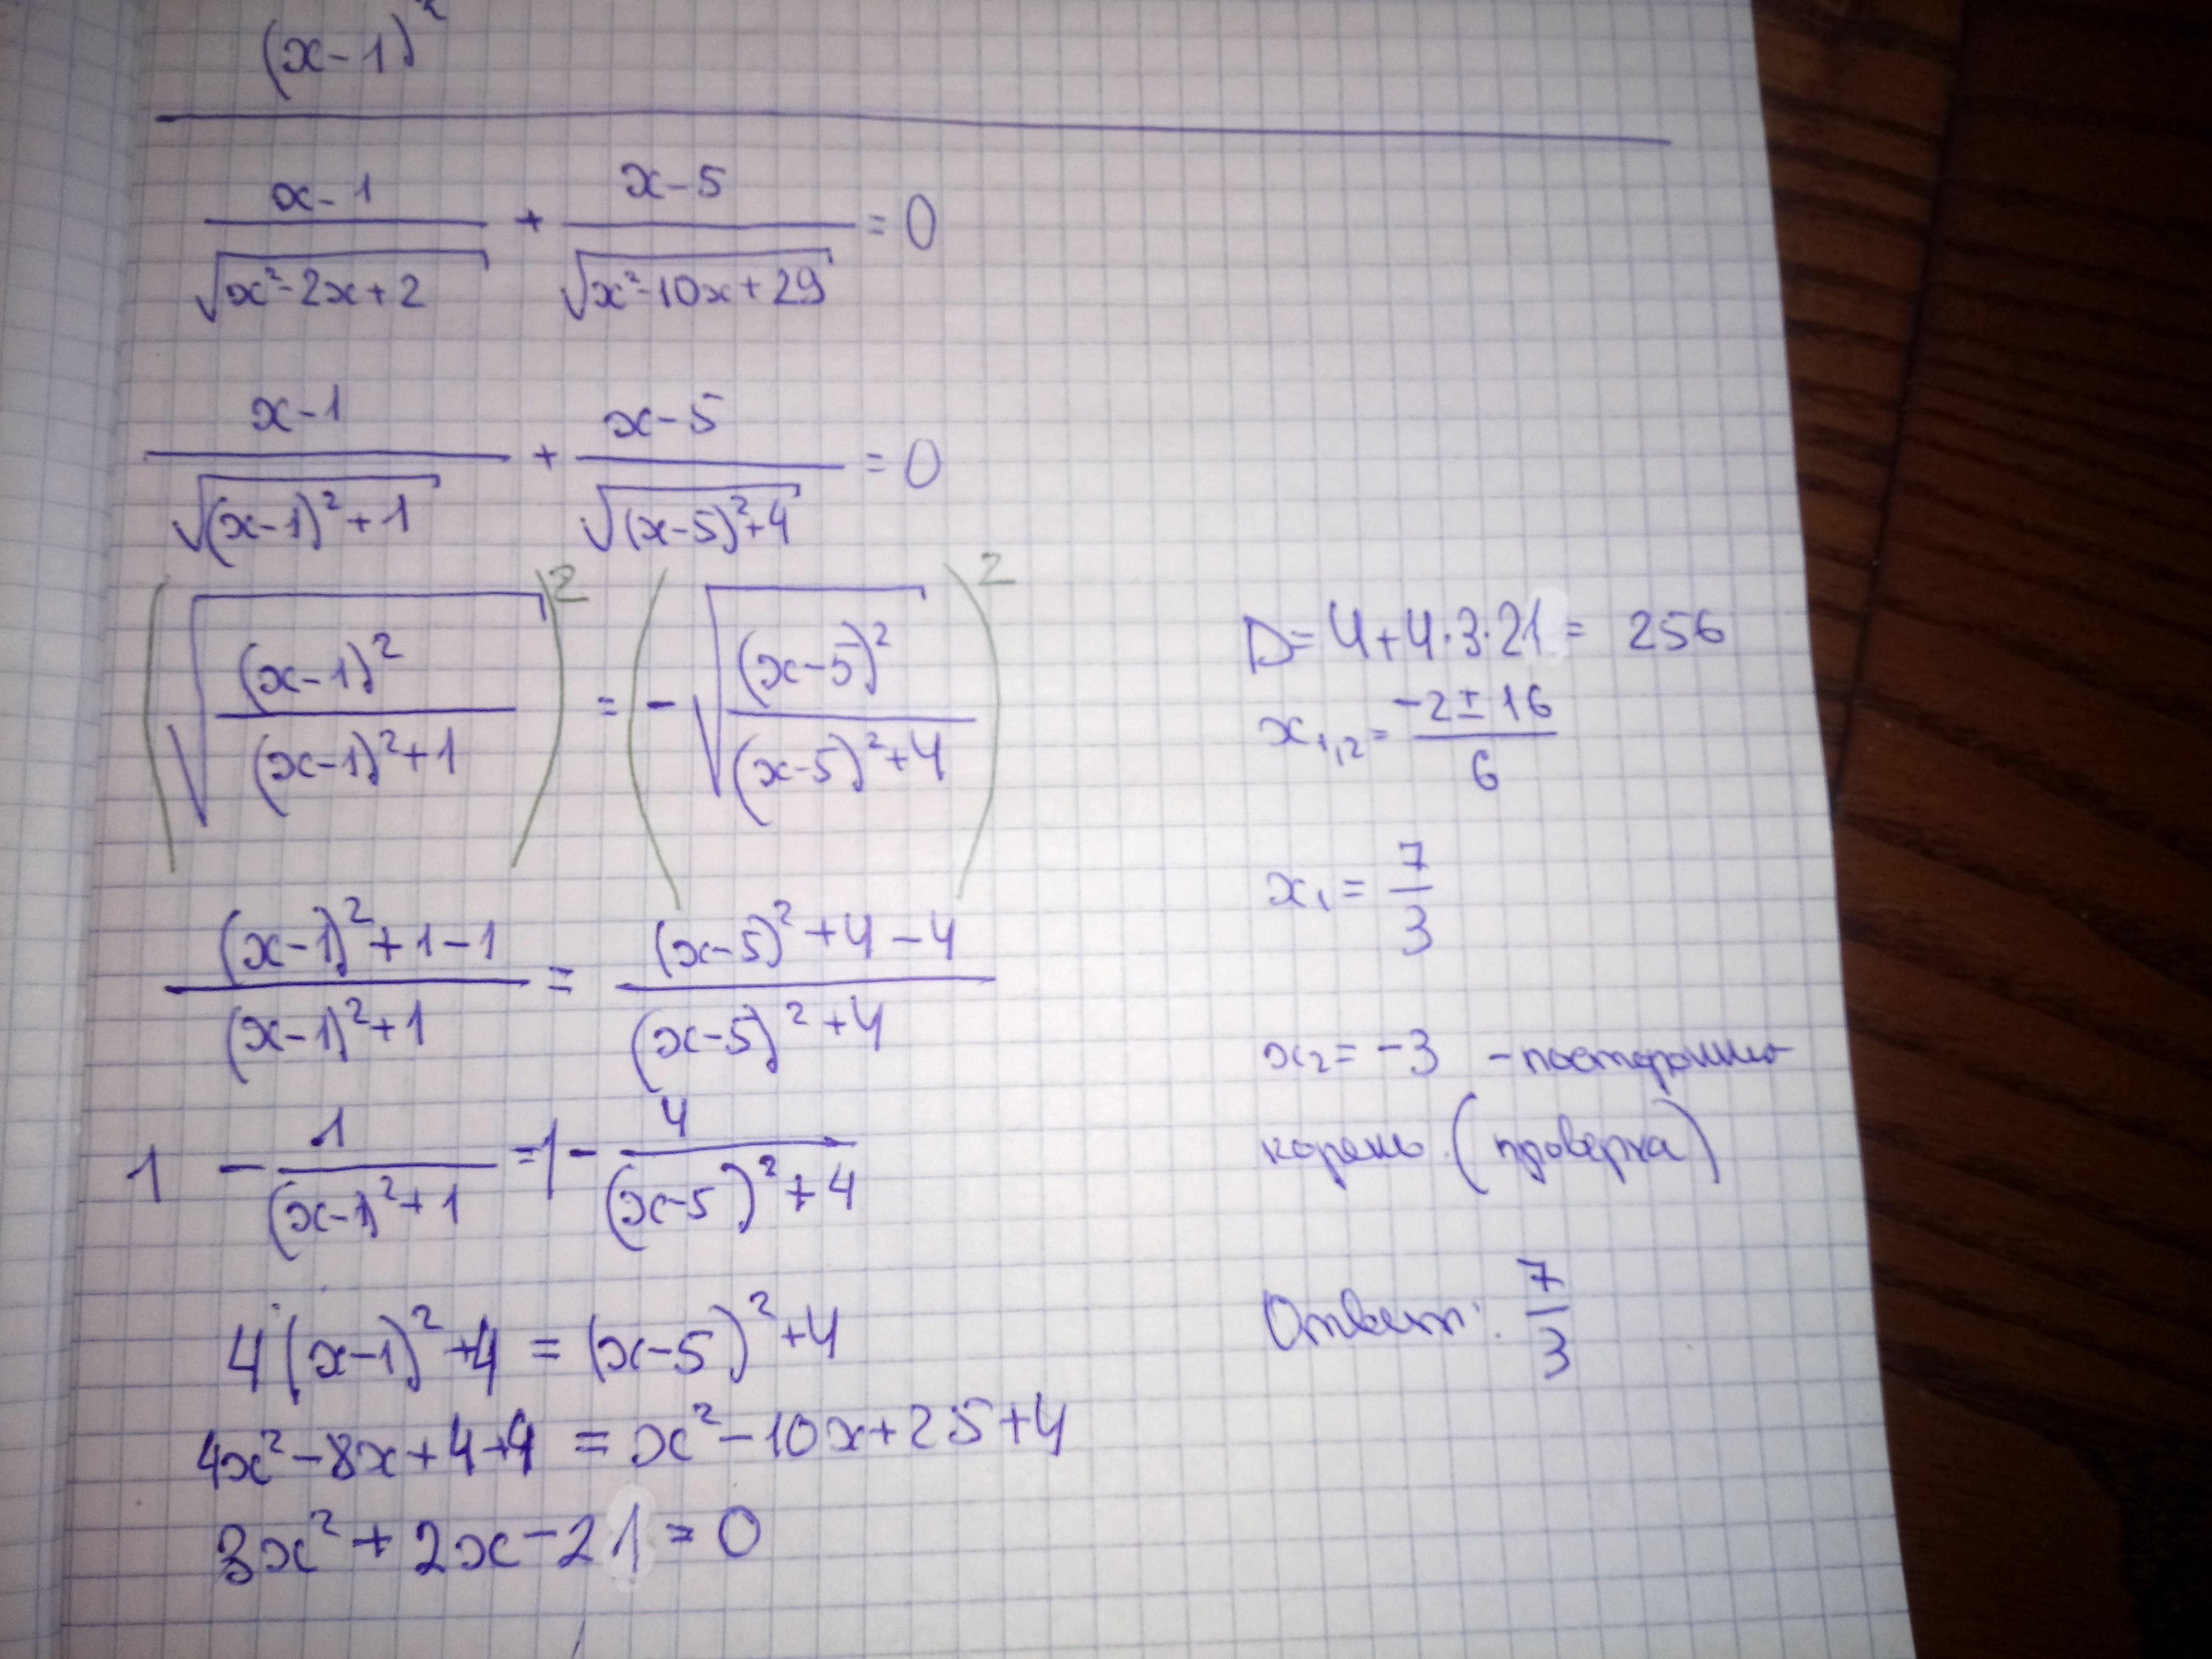 (x-1)²
(x-1)/√(x²-2x+2) + (x-5)/√(x²-10x+29) = 0
(x-1)/√((x-1)²+1) + (x-5)/√((x-5)²+4) = 0
(√((x-1)²/((x-1)²+1)))² = (-√((x-5)²/((x-5)²+4)))²
((x-1)²+1-1)/((x-1)²+1) = ((x-5)²+4-4)/((x-5)²+4)
1 - 1/((x-1)²+1) = 1 - 4/((x-5)²+4)
4(x-1)²+4 = (x-5)²+4
4x²-8x+4+4 = x²-10x+25+4
3x²+2x-21=0
D=4+4·3·21= 256
x₁,₂= (-2±16)/6
x₁= 7/3
x₂= -3 - посторонний
корень (проверка)
Ответ: 7/3